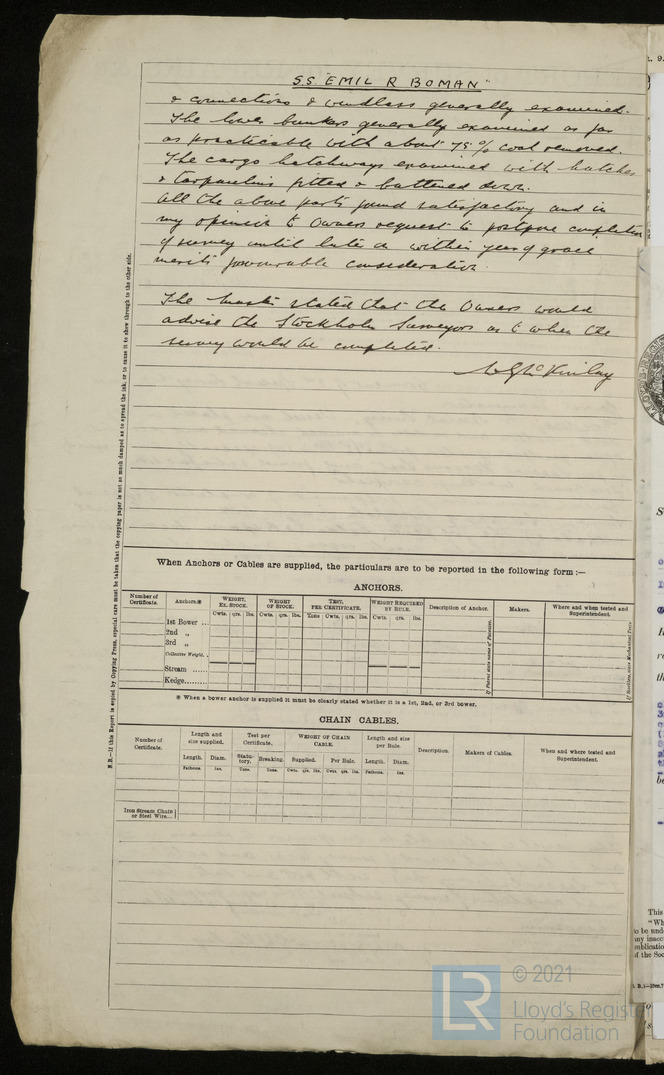 S.S. "EMIL R BOMAN"
& connections & windlass generally examined.
The lower bunkers generally examined as far
as practicable with about 75% coal removed.
The cargo hatchways examined with hatches
& tarpaulins fitted & battened down.
All the above parts found satisfactory and in
my opinion the Owners request to postpone completion
of survey until late or within year of grace
merits favourable consideration.
The Master stated that the Owners would
advise the Stockholm Surveyors as to when the
survey would be completed.
McKinlay
N.B.—If this Report is copied by Copying Press, especial care must be taken that the copying paper is not so much damped as to spread the ink, or to cause it to show through to the other side.
When Anchors or Cables are supplied, the particulars are to be reported in the following form :—
ANCHORS.
Number of Certificate.
Anchors.※
WEIGHT, EX. STOCK.
WEIGHT OF STOCK.
TEST, PER CERTIFICATE.
WEIGHT REQUIRED BY RULE.
Description of Anchor.
Makers.
Where and when tested and Superintendent.
Cwts. qrs. lbs. Cwts. qrs. lbs. Tons Cwts. qrs. lbs. Cwts. qrs. lbs.
1st Bower ...
2nd „
3rd „
Collective Weight. .
Stream ......
Kedge.........
If Patent state name of Patentee.
※ When a bower anchor is supplied it must be clearly stated whether it is a 1st, 2nd, or 3rd bower.
CHAIN CABLES.
Number of Certificate.
Length and size supplied.
Test per Certificate.
WEIGHT OF CHAIN CABLE.
Length and size per Rule.
Description.
Makers of Cables.
When and where tested and Superintendent.
Length. Diam. Statutory. Breaking. Supplied. Per Rule. Length. Diam.
Fathoms. Ins. Tons. Tons. Cwts. qrs. lbs. Cwts. qrs. lbs. Fathoms. Ins.
Iron Stream Chain or Steel Wire...
LR
© 2021
Lloyd's Register
Foundation